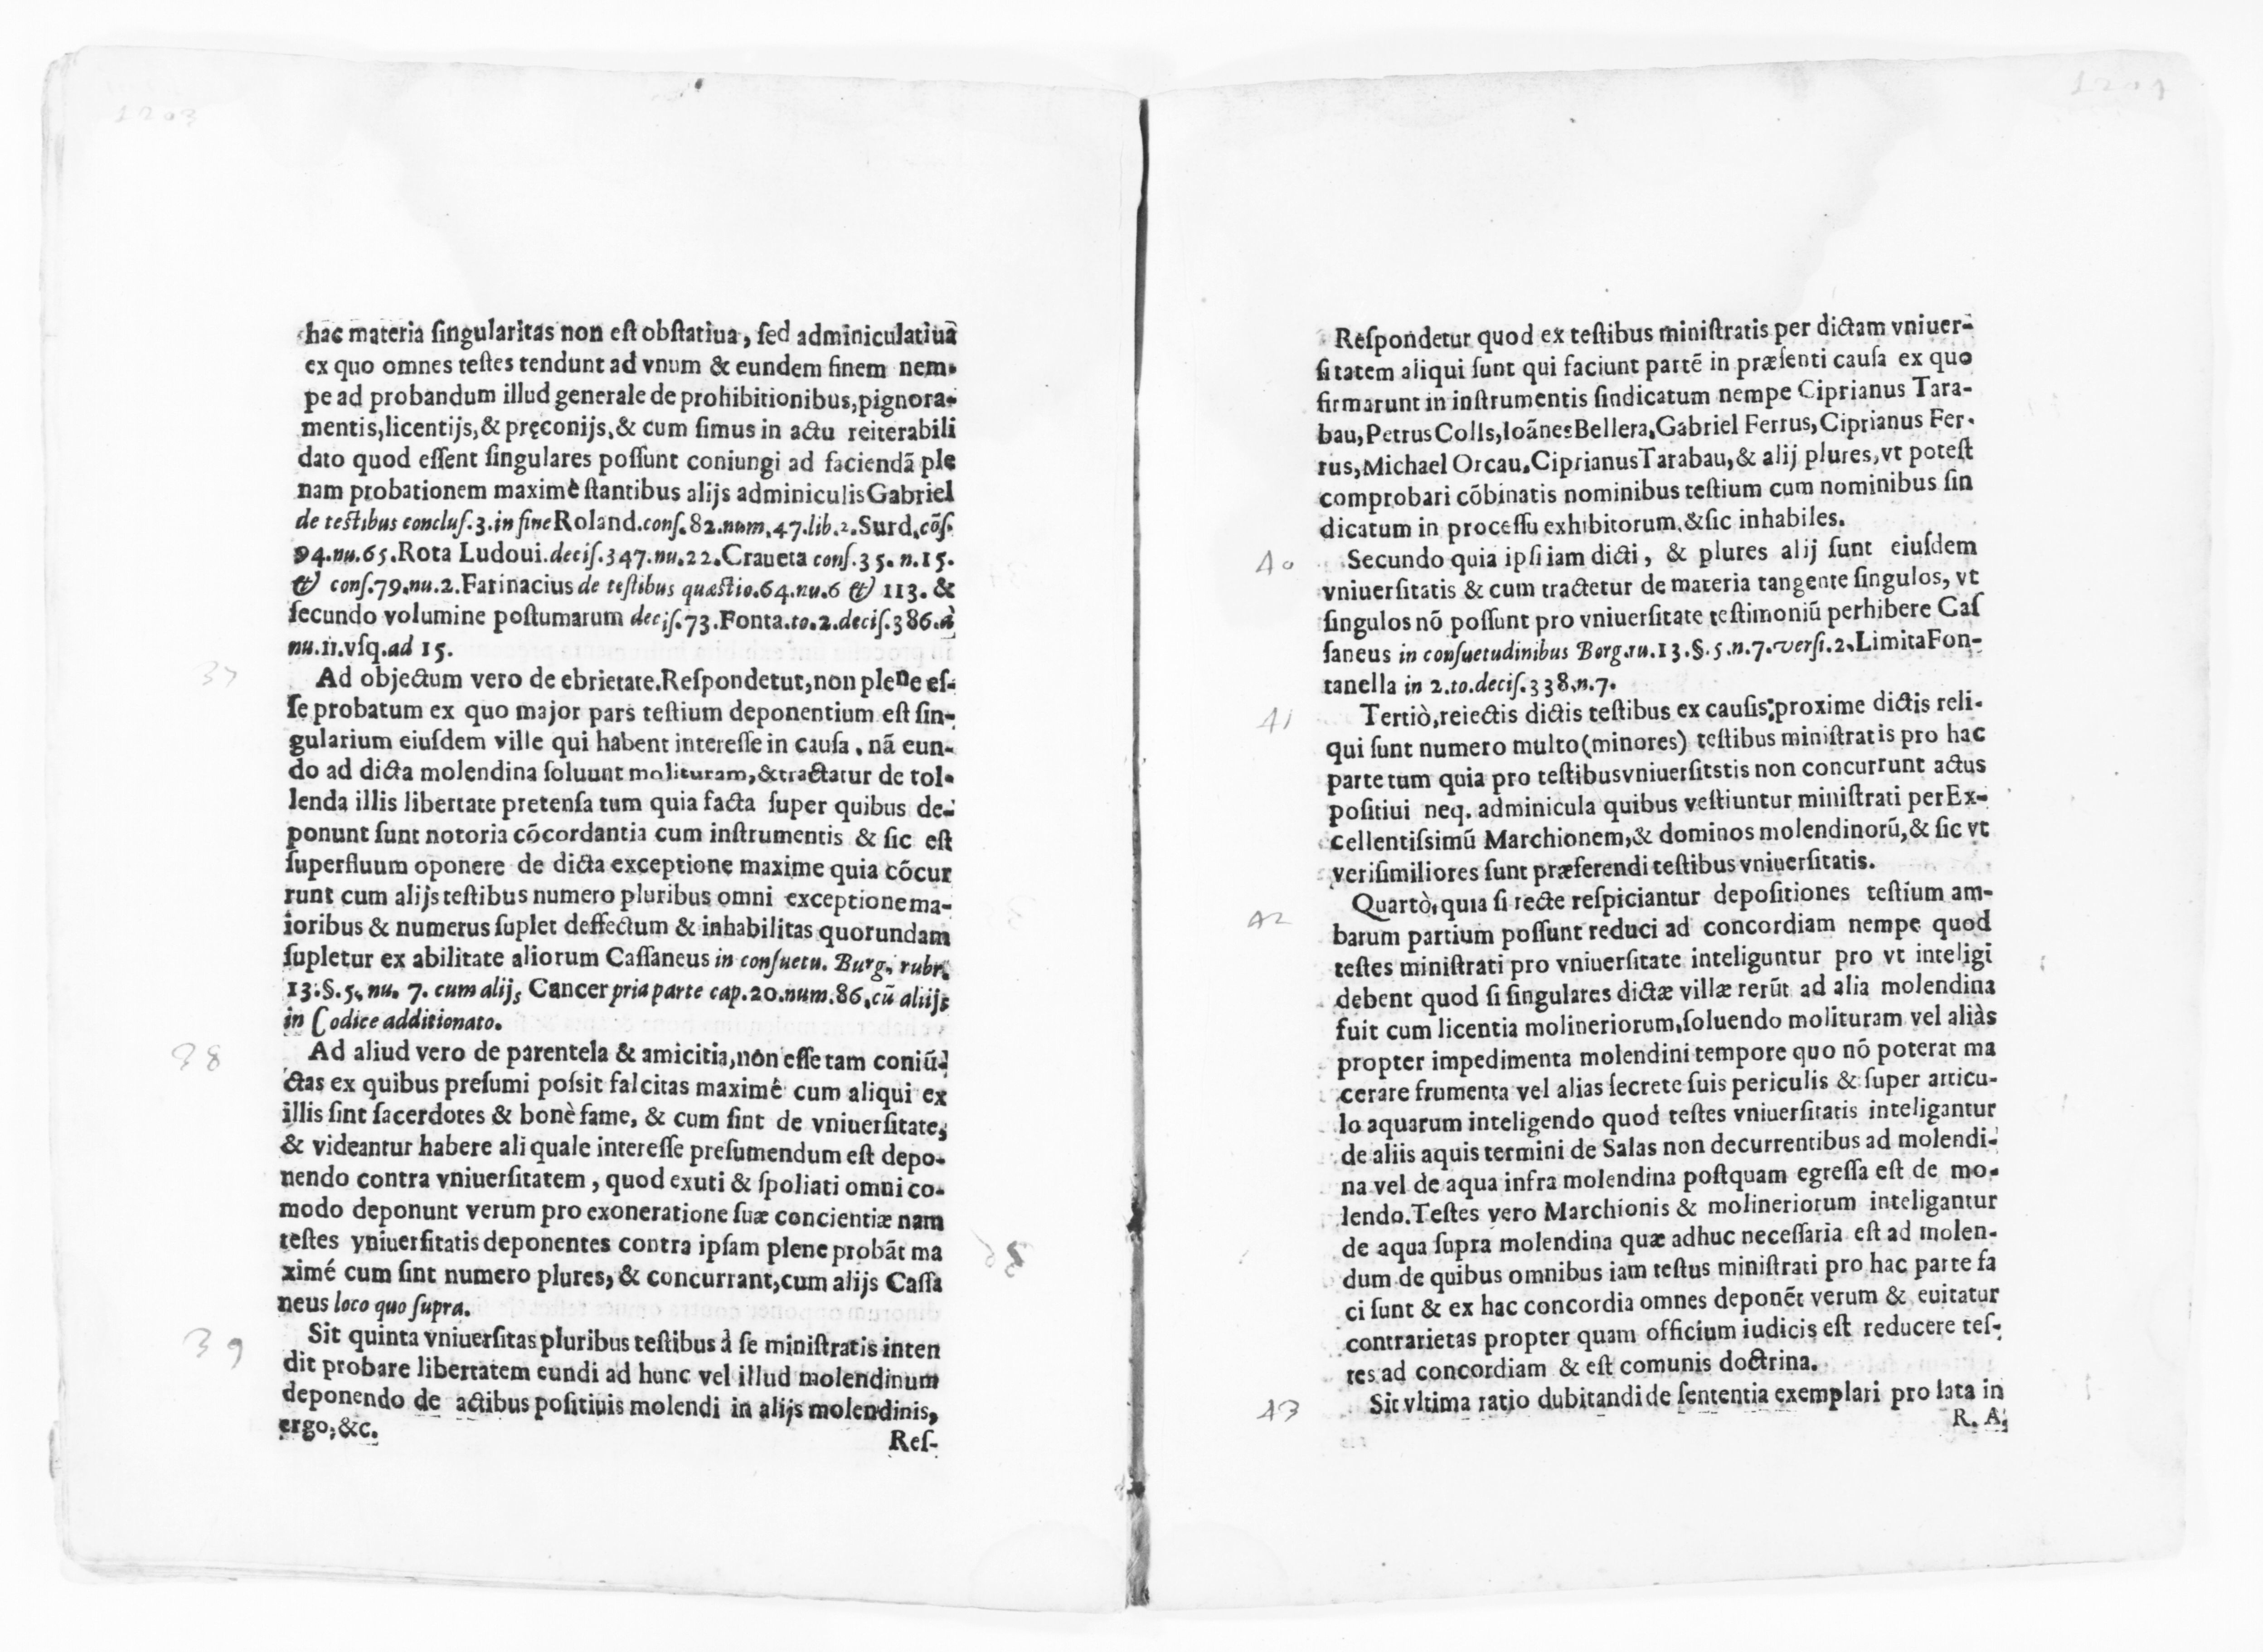 1203
hac materia ſingularitas non eſt obſtatiua, ſed adminiculatiua
ex quo omnes teſtes tendunt ad vnum & eundem finem nem-
pe ad probandum illud generale de prohibitionibus, pignora-
mentis, licentijs, & pręconijs, & cum ſimus in actu reiterabili
dato quod eſſent ſingulares poſſunt coniungi ad faciendã ple
nam probationem maximè ſtantibus alijs adminiculis Gabriel
de teſtibus concluſ. 3. in fine Roland. conſ. 82. num. 47. lib. 2. Surd. cõſ.
94. nu. 65. Rota Ludoui. deciſ. 347. nu. 22. Craueta conſ. 35. n. 15.
& conſ. 79. nu. 2. Farinacius de teſtibus quæſtio. 64. nu. 6 & 113. &
ſecundo volumine poſtumarum deciſ. 73. Fonta. to. 2. deciſ. 386. à
nu. 11. vſq. ad 15.
37
Ad objectum vero de ebrietate. Reſpondetut, non plene eſ-
ſe probatum ex quo major pars teſtium deponentium eſt ſin-
gularium eiuſdem ville qui habent intereſſe in cauſa, nã eun-
do ad dicta molendina ſoluunt molituram, & tractatur de tol-
lenda illis libertate pretenſa tum quia facta ſuper quibus de-
ponunt ſunt notoria cõcordantia cum inſtrumentis & ſic eſt
ſuperfluum oponere de dicta exceptione maxime quia cõcur
runt cum alijs teſtibus numero pluribus omni exceptione ma-
ioribus & numerus ſuplet deffectum & inhabilitas quorundam
ſupletur ex abilitate aliorum Caſſaneus in conſuetu. Burg. rubr.
13. §. 5. nu. 7. cum alij, Cancer pria parte cap. 20. num. 86. cũ aliijs
in Codice additionato.
38
Ad aliud vero de parentela & amicitia, non eſſe tam coniũ-
ctas ex quibus preſumi poſsit falcitas maximè cum aliqui ex
illis ſint ſacerdotes & bonè fame, & cum ſint de vniuerſitate,
& videantur habere ali quale intereſſe preſumendum eſt depo-
nendo contra vniuerſitatem, quod exuti & ſpoliati omni co-
modo deponunt verum pro exoneratione ſuæ concientiæ nam
teſtes vniuerſitatis deponentes contra ipſam plene probãt ma
ximé cum ſint numero plures, & concurrant, cum alijs Caſſa
neus loco quo ſupra.
39
Sit quinta vniuerſitas pluribus teſtibus â ſe miniſtratis inten
dit probare libertatem eundi ad hunc vel illud molendinum
deponendo de actibus poſitiuis molendi in alijs molendinis,
ergo, &c.
Reſ-
Reſpondetur quod ex teſtibus miniſtratis per dictam vniuer-
ſitatem aliqui ſunt qui faciunt partẽ in præſenti cauſa ex quo
firmarunt in inſtrumentis ſindicatum nempe Ciprianus Tara-
bau, Petrus Colls, Ioãnes Bellera, Gabriel Ferrus, Ciprianus Fer-
rus, Michael Orcau, Ciprianus Tarabau, & alij plures, vt poteſt
comprobari cõbinatis nominibus teſtium cum nominibus ſin
dicatum in proceſſu exhibitorum, & ſic inhabiles.
40
Secundo quia ipſi iam dicti, & plures alij ſunt eiuſdem
vniuerſitatis & cum tractetur de materia tangente ſingulos, vt
ſingulos nõ poſſunt pro vniuerſitate teſtimoniũ perhibere Caſ
ſaneus in conſuetudinibus Borg. ru. 13. §. 5. n. 7. verſi. 2. Limita Fon-
tanella in 2. to. deciſ. 338. n. 7.
41
Tertiò, reiectis dictis teſtibus ex cauſis; proxime dictis reli-
qui ſunt numero multo (minores) teſtibus miniſtratis pro hac
parte tum quia pro teſtibus vniuerſitstis non concurrunt actus
poſitiui neq. adminicula quibus veſtiuntur miniſtrati per Ex-
cellentiſsimũ Marchionem, & dominos molendinorũ, & ſic vt
veriſimiliores ſunt præferendi teſtibus vniuerſitatis.
42
Quartò, quia ſi recte reſpiciantur depoſitiones teſtium am-
barum partium poſſunt reduci ad concordiam nempe quod
teſtes miniſtrati pro vniuerſitate inteliguntur pro vt inteligi
debent quod ſi ſingulares dictæ villæ rerũt ad alia molendina
fuit cum licentia molineriorum, ſoluendo molituram vel aliàs
propter impedimenta molendini tempore quo nõ poterat ma
cerare frumenta vel alias ſecrete ſuis periculis & ſuper articu-
lo aquarum inteligendo quod teſtes vniuerſitatis inteligantur
de aliis aquis termini de Salas non decurrentibus ad molendi-
na vel de aqua infra molendina poſtquam egreſſa eſt de mo-
lendo. Teſtes vero Marchionis & molineriorum inteligantur
de aqua ſupra molendina quæ adhuc neceſſaria eſt ad molen-
dum de quibus omnibus iam teſtus miniſtrati pro hac parte fa
ci ſunt & ex hac concordia omnes deponẽt verum & euitatur
contrarietas propter quam officium iudicis eſt reducere teſ-
tes ad concordiam & eſt comunis doctrina.
43
Sit vltima ratio dubitandi de ſententia exemplari pro lata in
R. A.